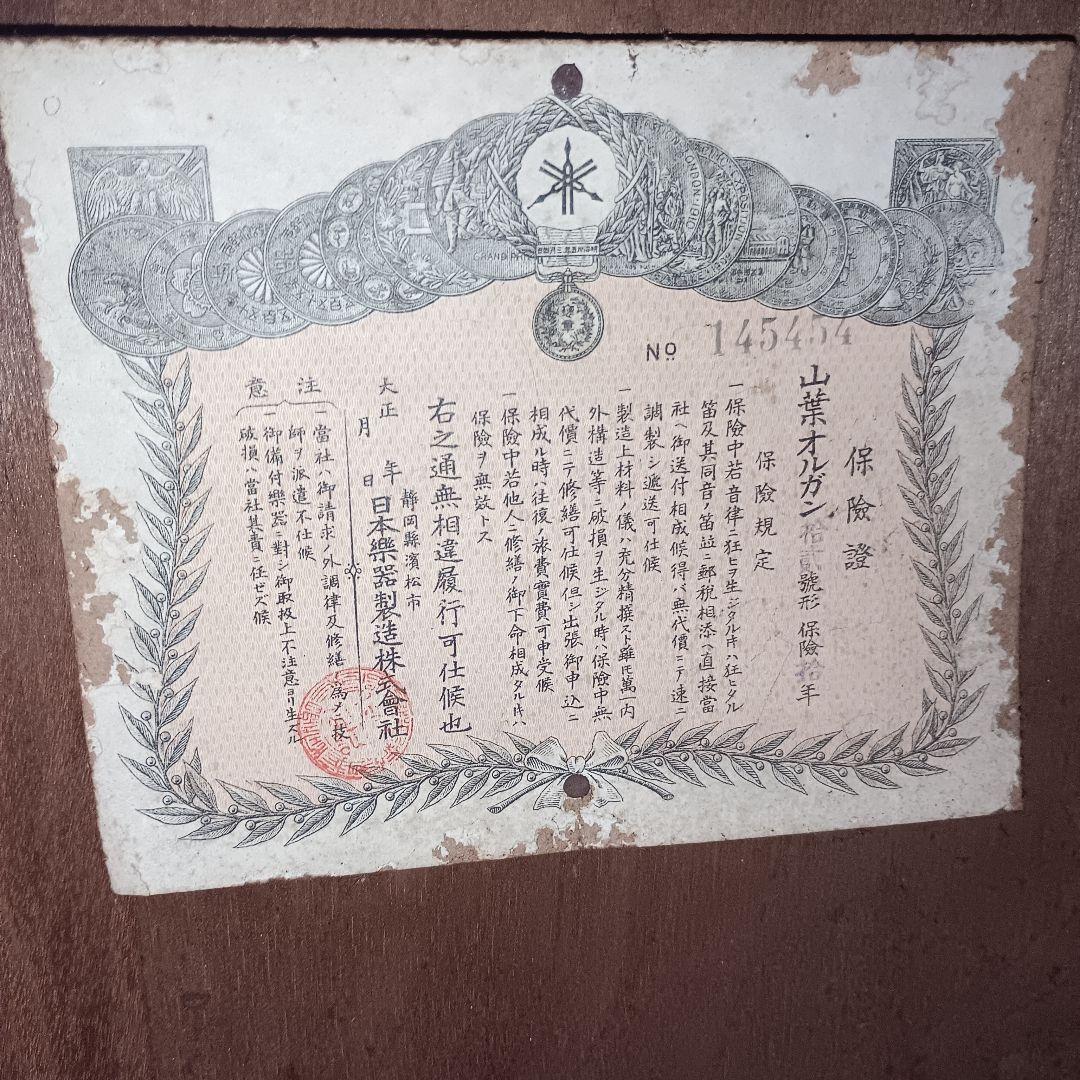 No 145454
保險證
山葉オルガン拾貳號形 保險拾年
保險規定
一保險中若音律ニ狂ヒヲ生ジタル時ハ狂ヒタル
笛及其同音ノ笛並ニ郵税相添ヘ直接當
社ヘ御送付相成候得バ無代價ニテ速ニ
調製シ遞送可仕候
一製造上材料ノ儀ハ充分精撰スト雖モ萬一內
外構造等ニ破損ヲ生ジタル時ハ保險中無
代價ニテ修繕可仕候但シ出張御申込ニ
相成ル時ハ往復ノ旅費實費可申受候
一保險中若他人ニ修繕ノ御下命相成タル時ハ
保險ヲ無效トス
右之通無相違履行可仕候也
靜岡縣濱松市
日本樂器製造株式會社
大正 年
月 日
注意
一當社ハ御請求ノ外調律及修繕ノ為メニ技
師ヲ派遣不仕候
一御備付樂器ニ對シ御取扱上不注意ヨリ生ズル
破損ハ當社其責ニ任ゼズ候
LONDON 1910